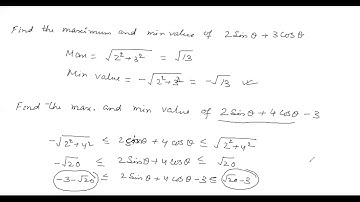 Find the maximum and min value of 2 Sinθ + 3 Cosθ
Max = √2²+3² = √13
Min value = -√2²+3² = -√13
Find the max. and min value of 2 Sinθ + 4 Cosθ - 3
-√2²+4² ≤ 2 Sinθ + 4 Cosθ ≤ √2²+4²
-√20 ≤ 2 Sinθ + 4 Cosθ ≤ √20
-3-√20 ≤ 2 Sinθ + 4 Cosθ - 3 ≤ √20 - 3